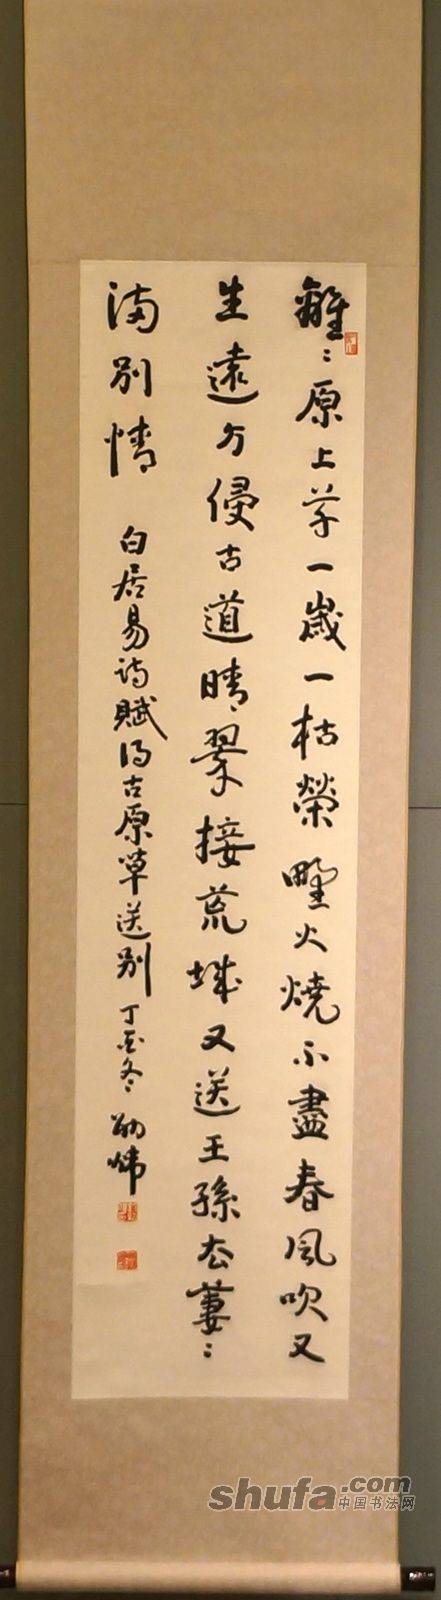 離〻原上草一歲一枯榮野火燒不盡春風吹又
生遠方侵古道晴翠接荒城又送王孫去萋〻
滿別情 白居易詩賦得古原草送別 丁酉冬
shufa.com
中国书法网